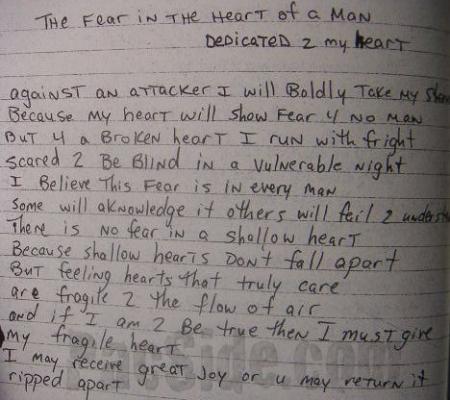 The Fear in The Heart of a Man
Dedicated 2 my heart
against an attacker I will Boldly Take My Stan
Because My heart will show Fear 4 No Man
But 4 a Broken heart I run with fright
scared 2 Be Blind in a vulnerable Night
I Believe This Fear is in every man
some will aknowledge it others will fail 2 underst
There is No fear in a shallow heart
Because shallow hearts Dont fall apart
But feeling hearts that truly care
are fragile 2 the flow of air
and if I am 2 Be true then I must give
My fragile heart
I may receive great Joy or u may return it
ripped apart